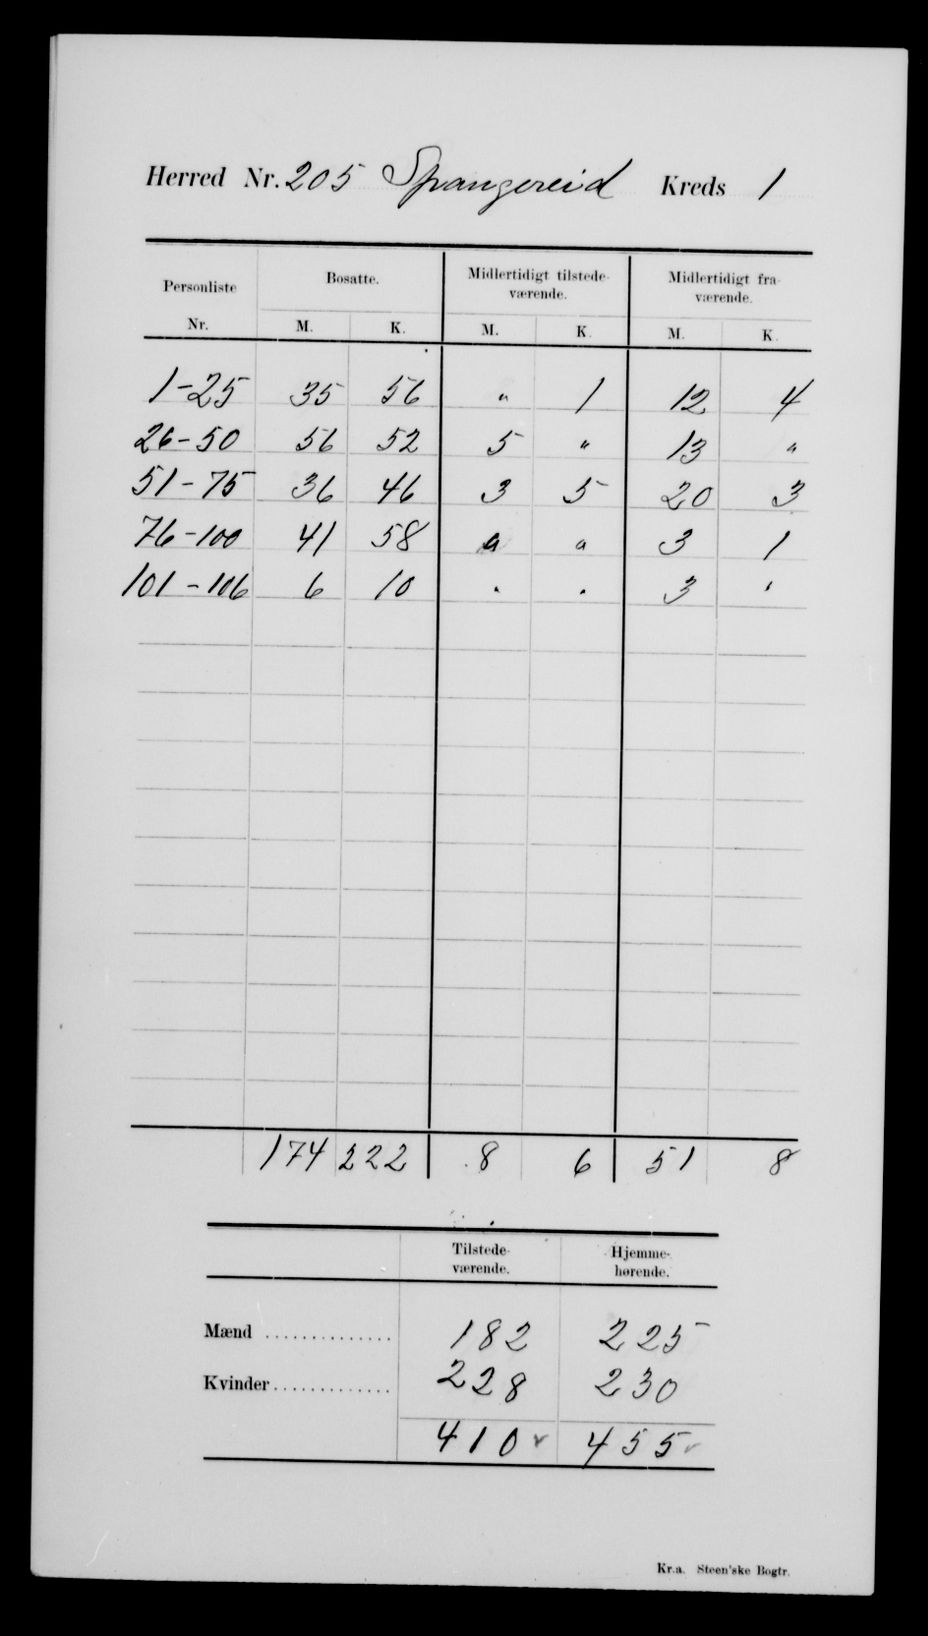 Herred Nr. 205 Spangereid Kreds 1
Personliste Nr. Bosatte. Midlertidigt tilstede-værende. Midlertidigt fra-værende.
M. K. M. K. M. K.
1-25 35 56 " 1 12 4
26-50 56 52 5 " 13 "
51-75 36 46 3 5 20 3
76-100 41 58 " " 3 1
101-106 6 10 . . 3 '
174 222 8 6 51 8
Tilstede-værende. Hjemme-hørende.
Mænd .............. 182 225
Kvinder............. 228 230
410 455
Kr.a. Steen'ske Bogtr.